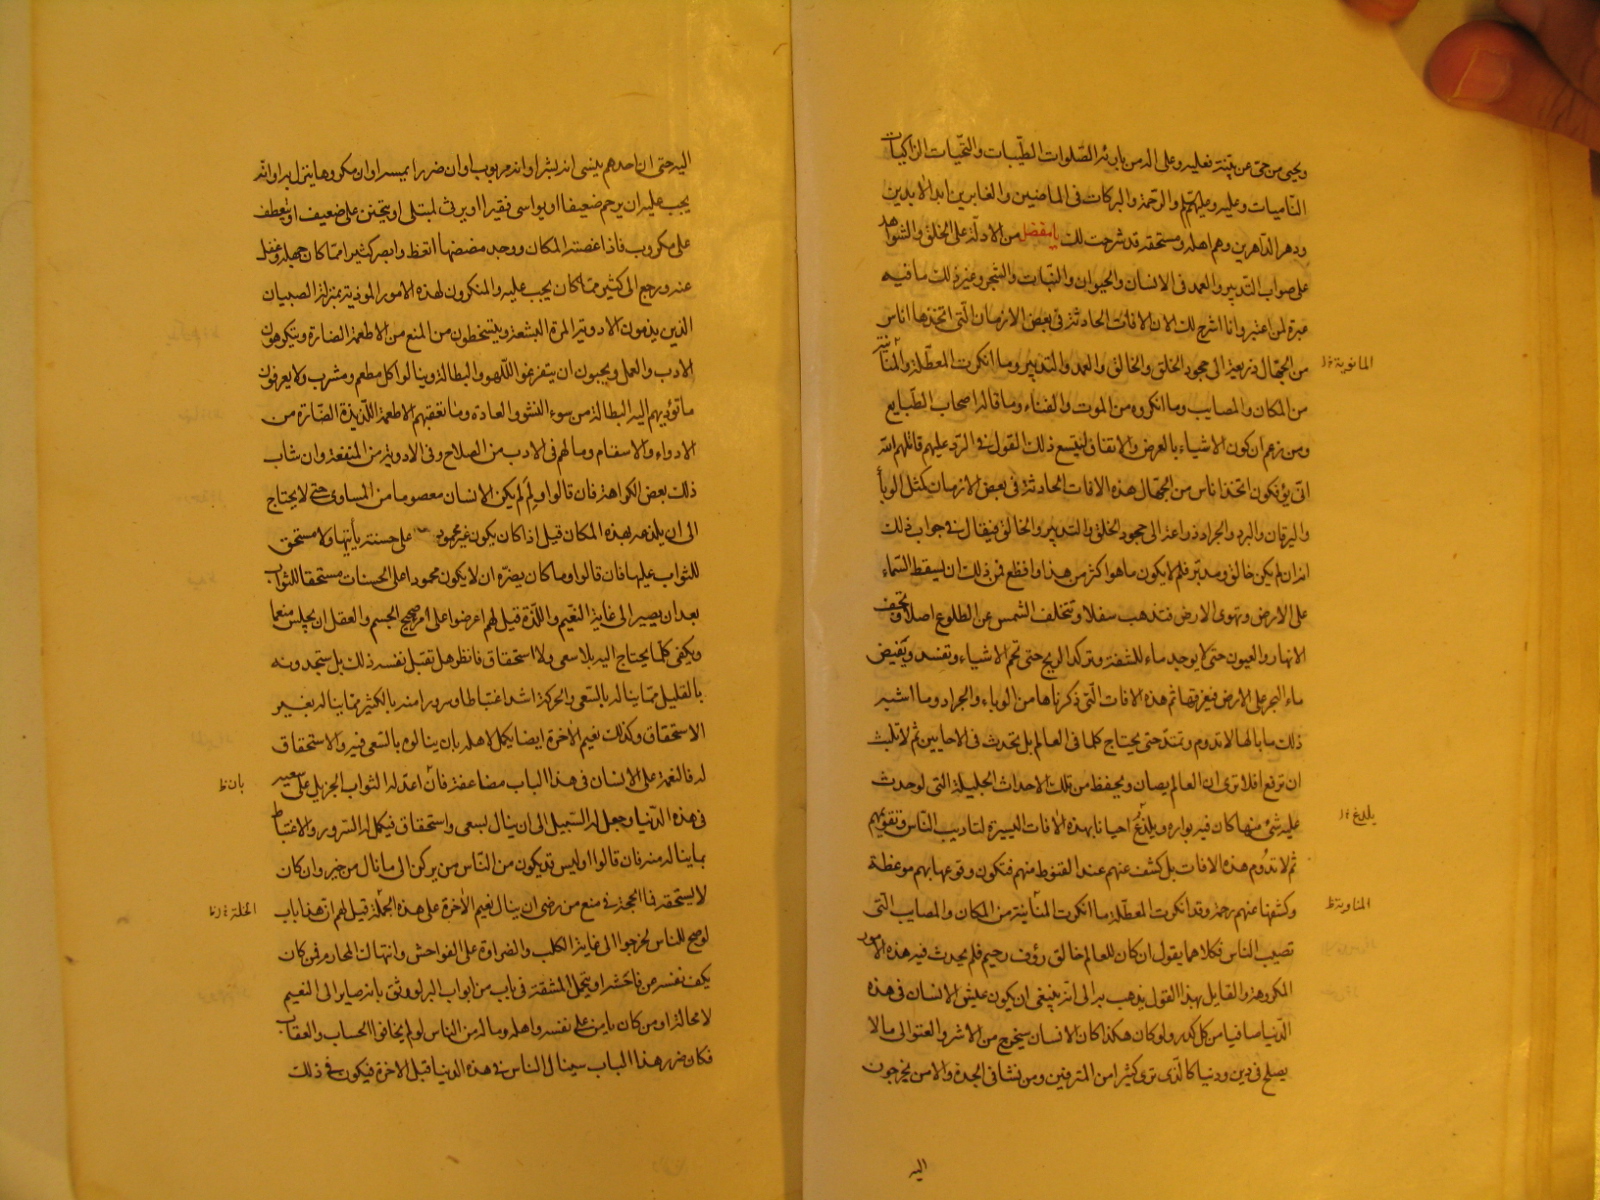 ويحيى من حي عن بينة فعليه وعلى اله من بارئه الصلوات الطيبات والتحيات الزاكيات
الناميات وعليه وعليهم السلم والرحمة والبركات في الماضين والغابرين ابد الابدين
ودهر الداهرين وهم اهله ومستحقه قد شرحت لك يا مفضل من الادلة على الخلق والشواهد
على صواب التدبير والعمد في الانسان والحيوان والنبات والشجر وغير ذلك ما فيه
عبرة لمن اعتبر وانا اشرح لك الان الافات الحادثة في بعض الازمان التي اتخذها اناس
من الجهال ذريعة الى جحود الخلق والخالق والعمد والتدبير وما انكرت المعطلة والمنانية
المانوية خ ل
من المكان والمصايب وما انكروه من الموت والفناء وما قاله اصحاب الطبايع
ومن زعم ان كون الاشياء بالعرض والاتفاق ليتسع ذلك القول في الرد عليهم قاتلهم الله
انى يؤفكون اتخذ اناس من الجهال هذه الافات الحادثة في بعض الازمان كمثل الوبأ
واليرقان والبرد والجراد ذراعة الى جحود الخلق والتدبير والخالق فيقال في جواب ذلك
انه ان لم يكن خالق ومدبر فلم لا يكون ما هو اكثر من هذا وافظع فمن ذلك ان يسقط السماء
على الارض وتهوى الارض فتذهب سفلا وتتخلف الشمس عن الطلوع اصلا وتجف
الانهار والعيون حتى لا يوجد ماء للشفة وتركد الريح حتى تحم الاشياء وتفسد ويفيض
ماء البحر على الارض فيغرقها ثم هذه الافات التي ذكرناها من الوباء والجراد وما اشبه
ذلك ما بالها لا تدوم وتمتد حتى يجتاح كلما في العالم بل تحدث في الاحايين ثم لا تلبث
ان ترفع افلا ترى ان العالم يصان ويحفظ من تلك الاحداث الجليلة التي لو حدث
عليه شئ منها كان فيه بواره ويلذع احيانا بهذه الافات اليسيرة لتاديب الناس وتقويمهم
يلدغ خ ل
ثم لا تدوم هذه الافات بل كشف عنهم عند القنوط منهم فتكون وقوعها بهم موعظة
وكشفها عنهم رحمة وقد انكرت المعطلة ما انكرت المنانية من المكان والمصايب التي
المناوية ظ
تصيب الناس فكلاهما يقول ان كان للعالم خالق رؤف رحيم فلم يحدث فيه هذه الامور
المكروهة والقايل بهذا القول يذهب به الى انه ينبغي ان يكون عيش الانسان في هذه
الدنيا صافيا من كل كدر ولو كان هكذا كان الانسان سيخرج من الاشر والعتو الى ما لا
يصلح في دين ودنيا كالذى ترى كثيرا من المترفين ومن نشا في الجدة والامن يخرجون
اليه
اليه حتى ان احدهم ينسى انه بشر او انه مربوب او ان ضررا يمسه او ان مكروها ينزل به او انه
يجب عليه ان يرحم ضعيفا او يواسى فقيرا او يرثى لمبتلى او يتحنن على ضعيف او يتعطف
على مكروب فاذا عضته المكان ووجد مضضها اتعظ وابصر كثيرا مما كان جهله وغفل
عنه ورجع الى كثير مما كان يجب عليه والمنكرون لهذه الامور الموذية بمنزلة الصبيان
الذين يذمون الادوية المرة البشعة ويتسخطون من المنع من الاطعمة الضارة ويتكرهون
الادب والعمل ويحبون ان يتفرغوا للهو والبطالة وينالوا كل مطعم ومشرب ولا يعرفون
ما تؤديهم اليه البطالة من سوء النشو والعادة وما تعقبهم الاطعمة اللذيذة الضارة من
الادواء والاسقام وما لهم في الادب من الصلاح وفي الادوية من المنفعة وان شاب
ذلك بعض الكراهة فان قالوا ولم لم يكن الانسان معصوما من المساوى حتى لا يحتاج
الى ان يلذعه بهذه المكان قيل اذا كان يكون غير محمود على حسنة يأتيها ولا مستحق
للثواب عليها فان قالوا وما كان يضره ان لا يكون محمودا على الحسنات مستحقا للثواب
بعد ان يصير الى غاية النعيم واللذة قيل لهم اعرضوا على امرء صحيح الجسم والعقل ان يجلس منعما
ويكفى كلما يحتاج اليه بلا سعى ولا استحقاق فانظر هل تقبل نفسه ذلك بل ستجدونه
بالقليل مما يناله بالسعى والحركة اشد اغتباطا وسرورا منه بالكثير مما يناله بغير
الاستحقاق وكذلك نعيم الاخرة ايضا يكمل لاهله بان ينالوه بالسعى فيه والاستحقاق
له فالنعمة على الانسان في هذا الباب مضاعفة فان اعد له الثواب الجزيل على سعيه
بان ظ
في هذه الدنيا وجعل له السبيل الى ان ينال بسعى واستحقاق فيكمل له السرور والاغتباط
بما يناله منه فان قالوا اوليس قد يكون من الناس من يركن الى ما نال من خير وان كان
لا يستحقه فما الحجة في منع من رضى ان ينال نعيم الاخرة على هذه الجملة قيل لهم ان هذا باب
لو صح للناس لخرجوا الى غاية الكلب والضراوة على الفواحش وانتهاك المحارم فمن كان
يكف نفسه عن فاحشة او يتحمل المشقة في باب من ابواب البر لو وثق بانه صاير الى النعيم
لا محالة او من كان يامن على نفسه واهله وماله من الناس لو لم يخافوا الحساب والعقاب
فكان ضرر هذا الباب سينال الناس في هذه الدنيا قبل الاخرة فيكون في ذلك